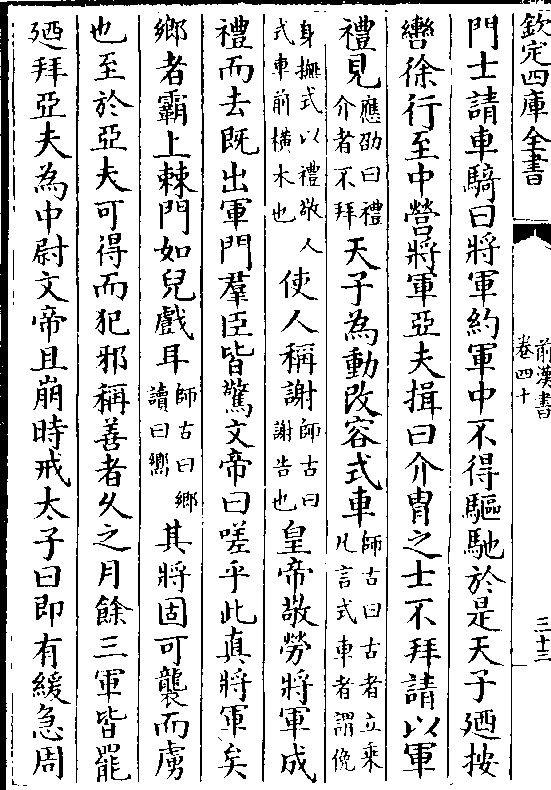 欽定四庫全書
前漢書
卷四十
三十三
門士請車騎曰將軍約軍中不得驅馳於是天子廼按
轡徐行至中營將軍亞夫揖曰介胄之士不拜請以軍
禮見應劭曰禮介者不拜天子為動改容式車師古曰古者立乘凡言式車者謂俛
身撫式以禮敬人式車前横木也使人稱謝師古曰謝告也皇帝敬勞將軍成
禮而去既出軍門羣臣皆驚文帝曰嗟乎此真將軍矣
鄉者霸上棘門如兒戲耳師古曰鄉讀曰嚮其將固可襲而虜
也至於亞夫可得而犯邪稱善者久之月餘三軍皆罷
廼拜亞夫為中尉文帝且崩時戒太子曰即有緩急周